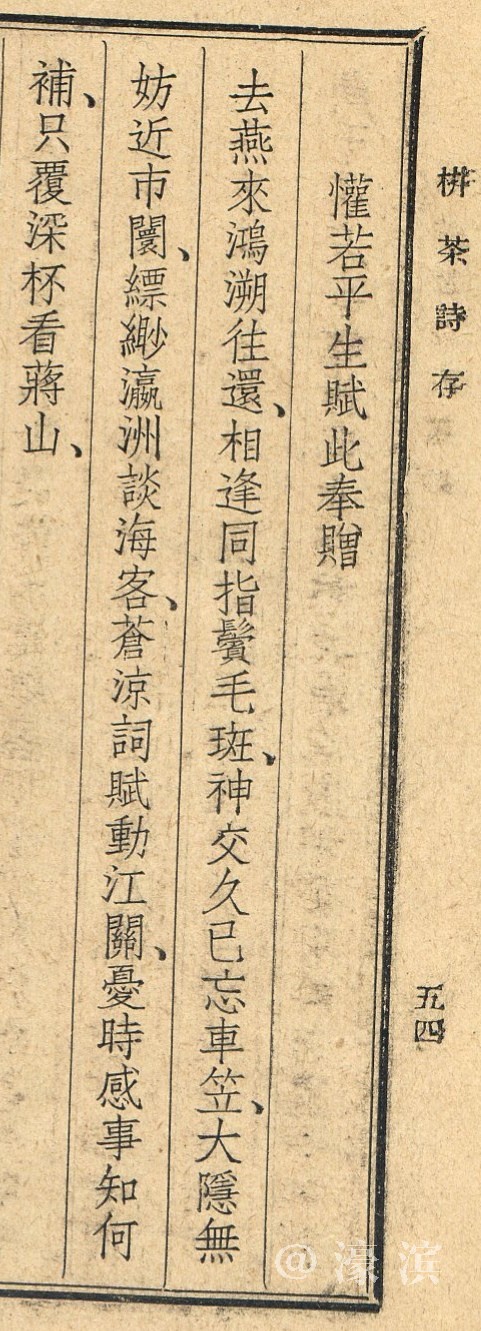 栟茶詩存
五四
懽若平生賦此奉贈
去燕來鴻溯往還、相逢同指鬢毛斑、神交久已忘車笠、大隱無
妨近市闤、縹緲瀛洲談海客、蒼涼詞賦動江關、憂時感事知何
補、只覆深杯看蔣山、
@濠滨